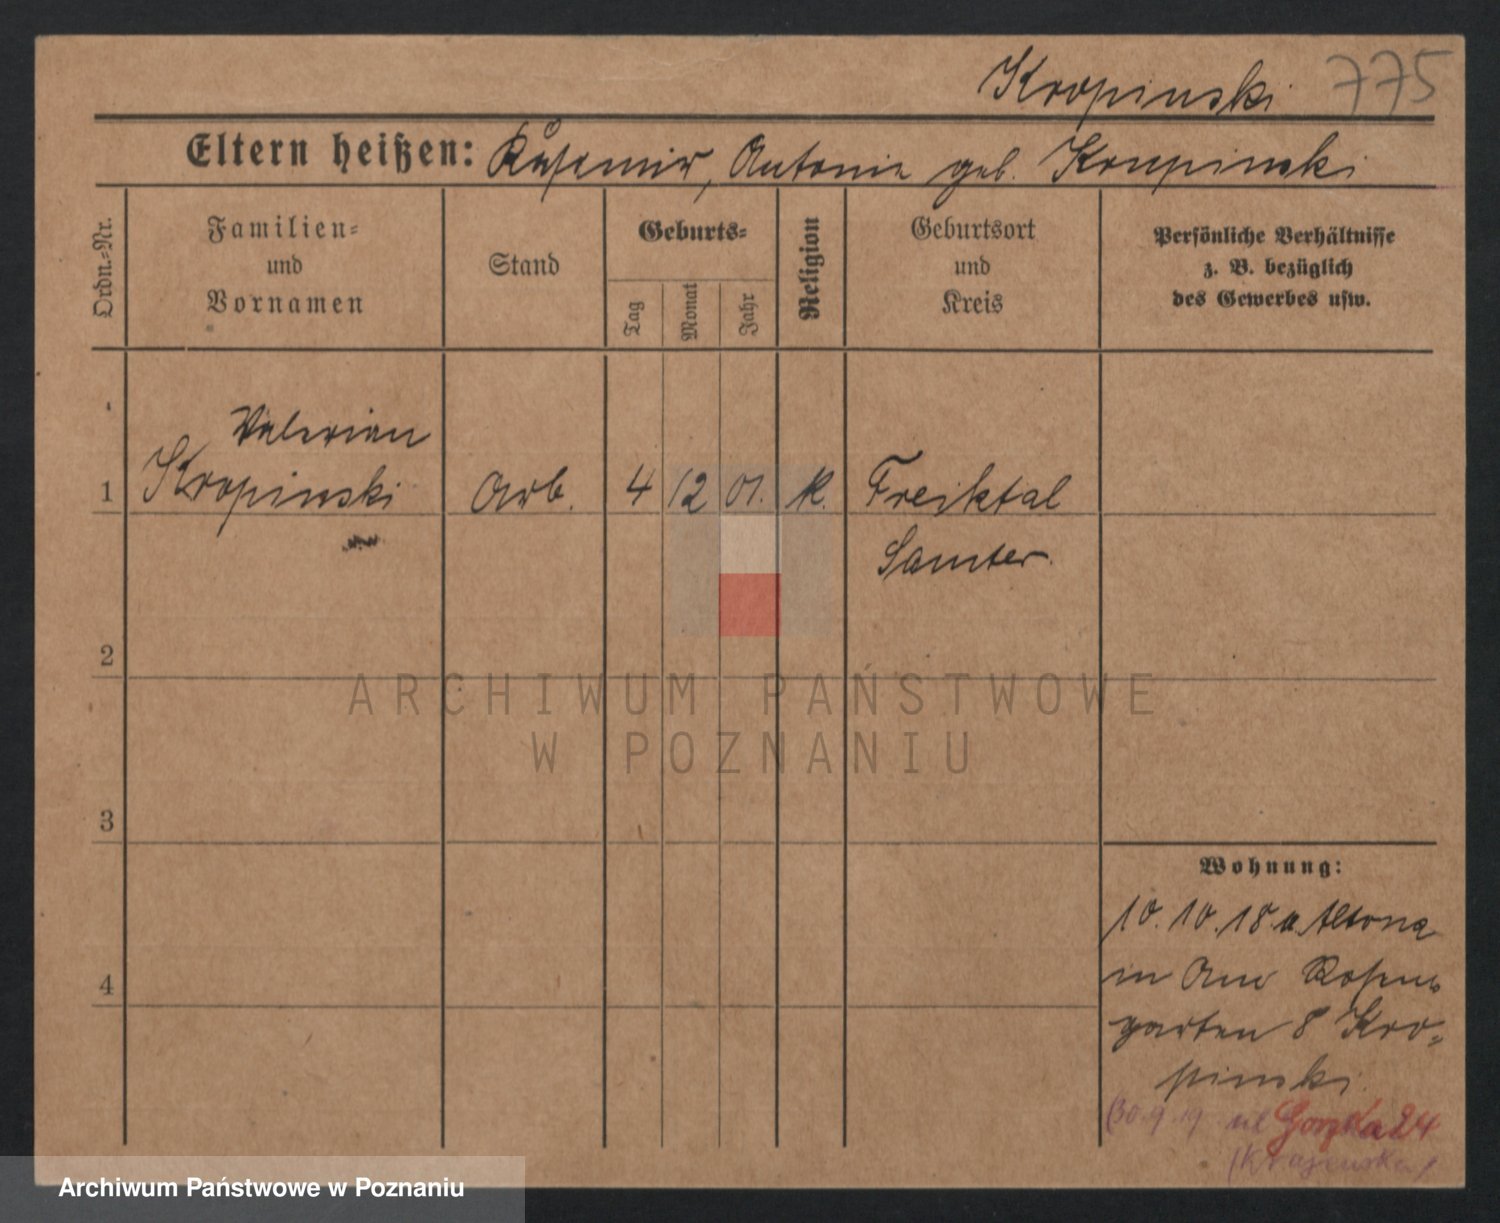 Kropinski 775
Eltern heißen: Kasimir, Antonie geb. Krupinski
Ordn.-Nr.
Familien-
und
Vornamen
Stand
Geburts-
Tag
Monat
Jahr
Religion
Geburtsort
und
Kreis
Persönliche Verhältnisse
z. B. bezüglich
des Gewerbes usw.
Valerian
1 Kropinski Arb. 4 12 01. K. Freiktal
Samter
2
ARCHIWUM PAŃSTWOWE
W POZNANIU
3
Wohnung:
10. 10. 18. a. Altona
in Am Rosen-
4
garten 8 Kro-
pinski
30.9.19 ul Gorzka 24
(Krajewska)
Archiwum Państwowe w Poznaniu